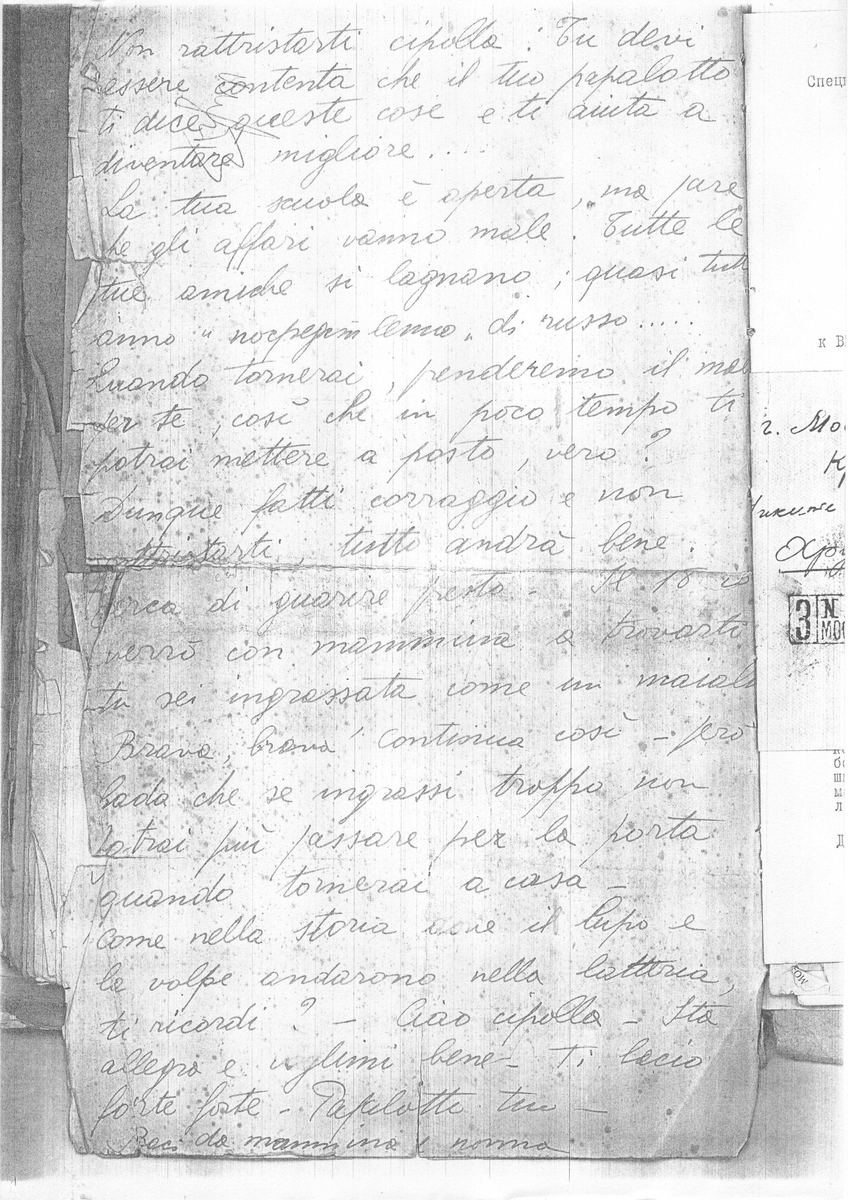 Non rattristarti cipolla! Tu devi
essere contenta che il tuo papalotto
ti dice queste cose e ti aiuta a
diventare migliore....
La tua scuola è aperta, ma pare
che gli affari vanno male. Tutte le
tue amiche si lagnano; quasi tutt
anno " di russo.....
Quando tornerai, prenderemo il
per te, così che in poco tempo ti
potrai mettere a posto, vero?
Dunque fatti corraggio e non
attristarti, tutto andrà bene.
Cerca di guarire presto - Il 18 io
verrò con mammina a trovarti
tu sei ingrassata come un maiale
Brava, brava! continua così - però
bada che se ingrassi troppo non
potrai più passare per la porta
quando tornerai a casa -
Come nella storia dove il lupo e
la volpe andarono nella latteria,
ti ricordi? - Ciao cipolla - Sta
allegra e voglimi bene - Ti bacio
forte forte - Papalotto tuo -
Baci da mammina e nonna
Специ
к В
г. Мо
3
N
МОС